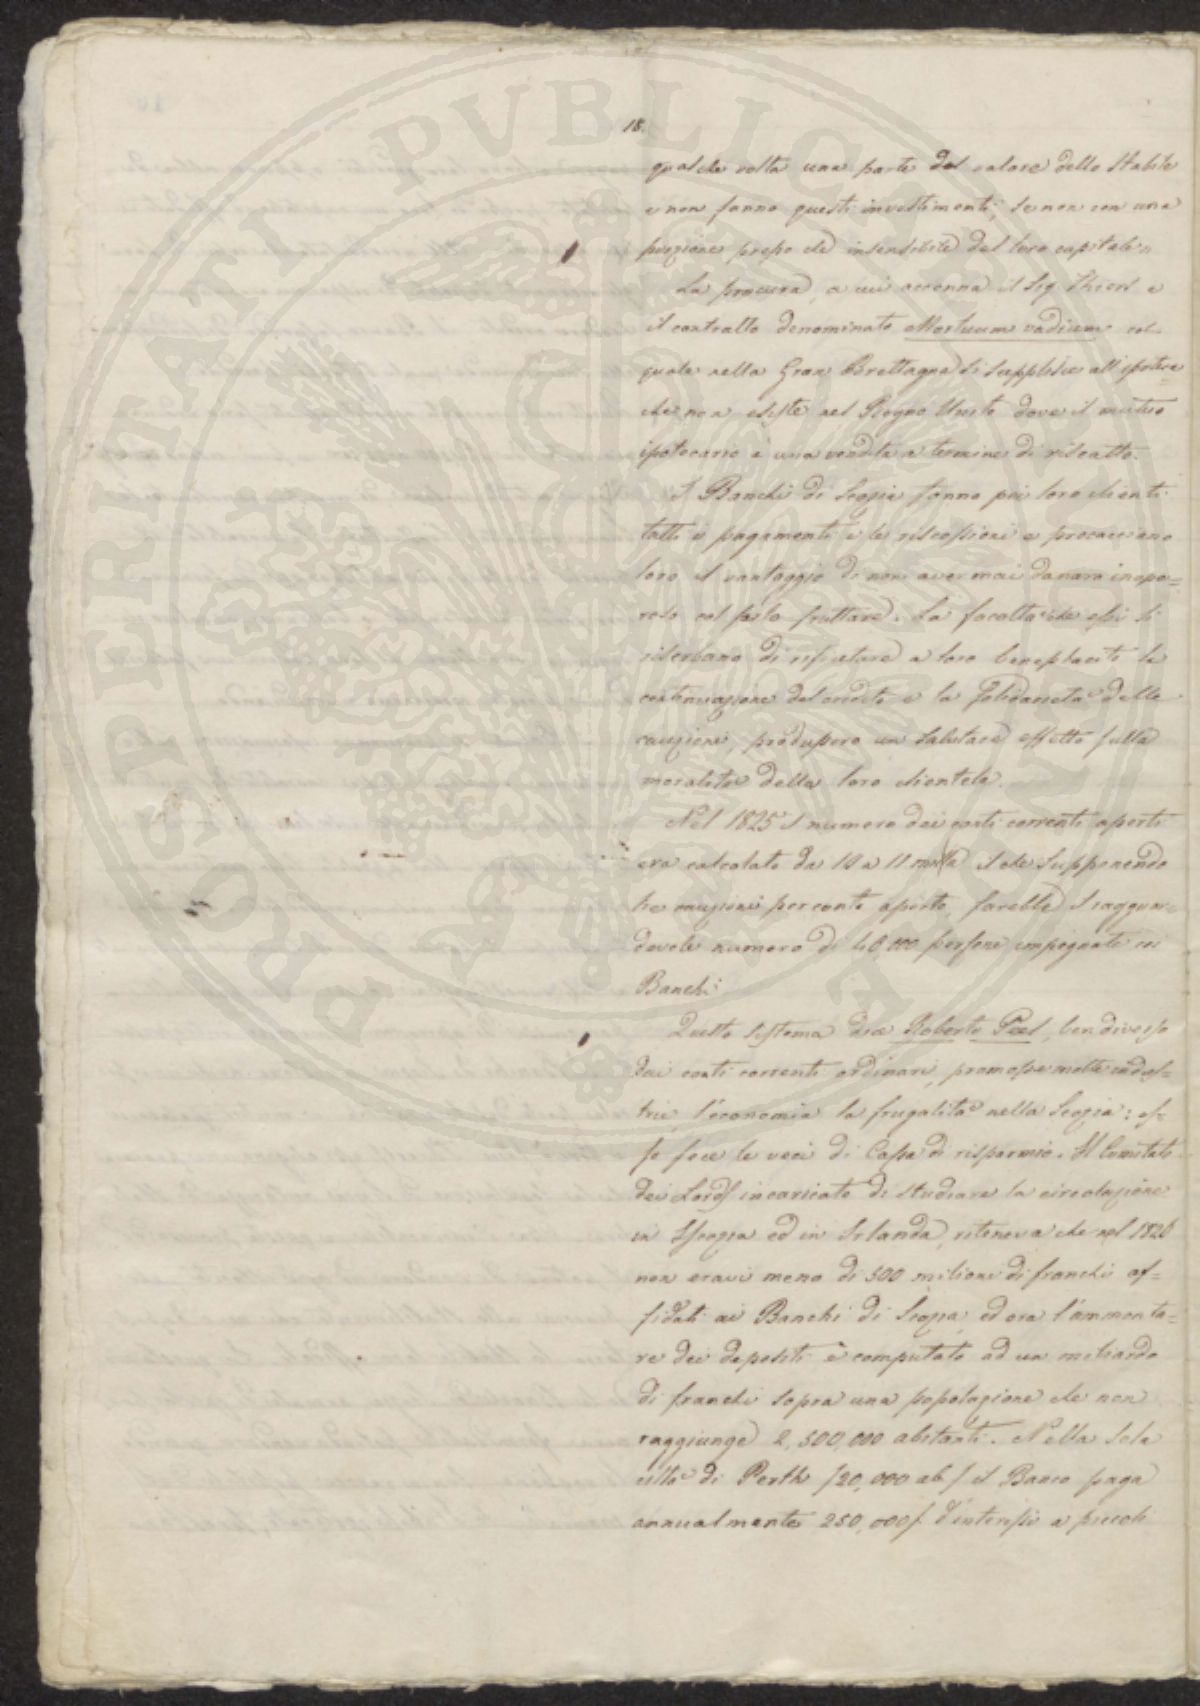 18.
qualche volta una parte del valore dello stabile
e non fanno questi investimenti, se non con una
porzione presso che insensibile del loro capitale „
La procura, a cui accenna il Sig. Thiers è
il contratto denominato Mortuum vadium col
quale nella Gran Brettagna si supplisce all'ipoteca
che non esiste nel Regno Unito dove il mutuo
ipotecario è una vendita a termine di riscatto.
I Banchi di Scozia fanno poi loro clienti
tutti i pagamenti e le riscossioni e procacciano
loro il vantaggio di non aver mai danaro inope=
roso col farlo fruttare. La facoltà che essi si
riserbano di rifiutare a loro beneplacito la
continuazione del credito e la solidarietà delle
cauzioni, produssero un salutare effetto sulla
moralità della loro clientela.
Nel 1825 il numero dei conti correnti aperti
era calcolato da 10 a 11 mila il che supponendo
tre cauzioni per conto aperto, farebbe il ragguar=
devole numero di 40,000 persone impegnate coi
Banchi.
Questo sistema dice Roberto Peel, ben diverso
dai conti correnti ordinari, promosse molte indus=
trie, l'economia la frugalità nella Scozia; es=
so fece le veci di Cassa di risparmio. Il Comitato
dei Lords incaricato di studiare la circolazione
in Iscozia ed in Irlanda, riteneva che nel 1826
non eravi meno di 500 milioni di franchi af=
fidati ai Banchi di Scozia, ed ora l'ammonta=
re dei depositi è computato ad un miliardo
di franchi sopra una popolazione che non
raggiunge 2,500,000 abitanti. Nella sola
città di Perth /20,000 ab/ il Banco paga
annualmente 250,000 f. d'interessi a piccoli
PROSPERITATI PUBLICAE